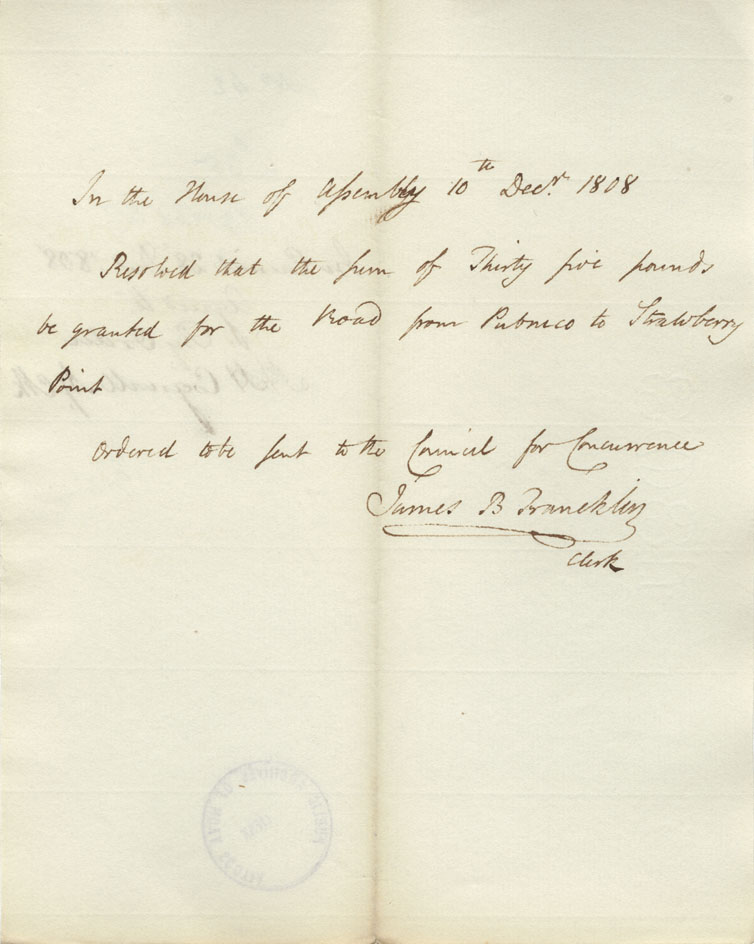 In the House of Assembly 10th Decr. 1808
Resolved that the sum of Thirty five pounds
be granted for the Road from Pubnico to Strawberry
Point
Ordered to be sent to the Council for Concurrence
James B Francklin
Clerk
PUBLIC ARCHIVES OF NOVA SCOTIA